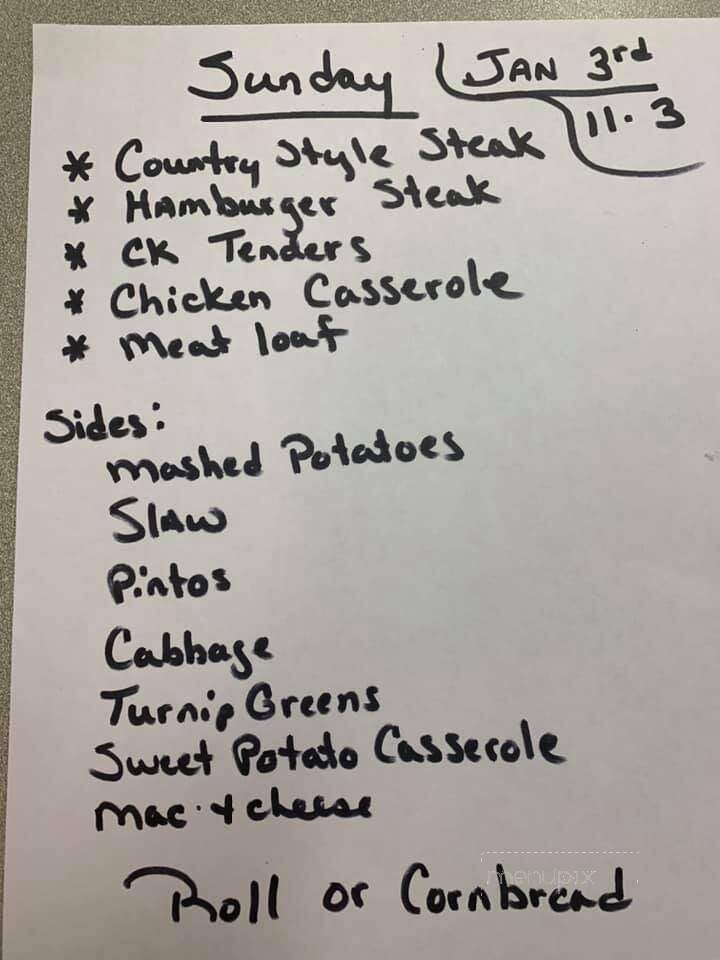 Sunday
JAN 3rd
11-3
* Country Style Steak
* Hamburger Steak
* CK Tenders
* Chicken Casserole
* meat loaf
Sides:
mashed Potatoes
Slaw
Pintos
Cabbage
Turnip Greens
Sweet Potato Casserole
mac + cheese
Roll or Cornbread
menupix